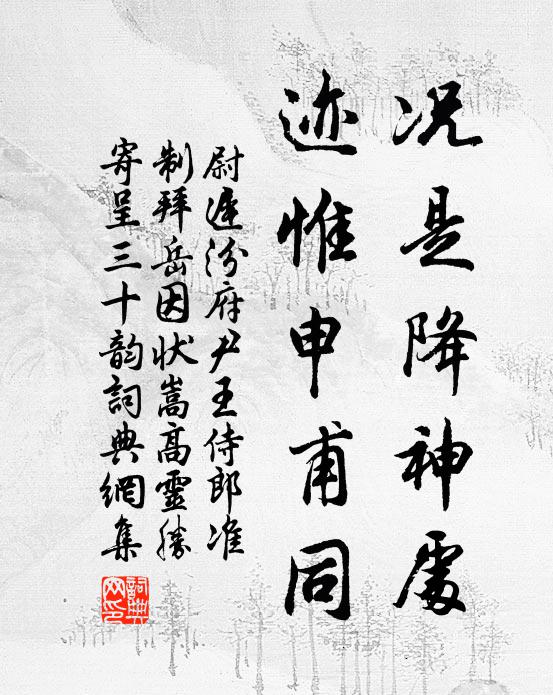 况是降神處
迹惟申甫同
尉遲汾府尹王侍郎准
制拜岳因狀嵩高靈勝
寄呈三十韵詞典網集
詞典